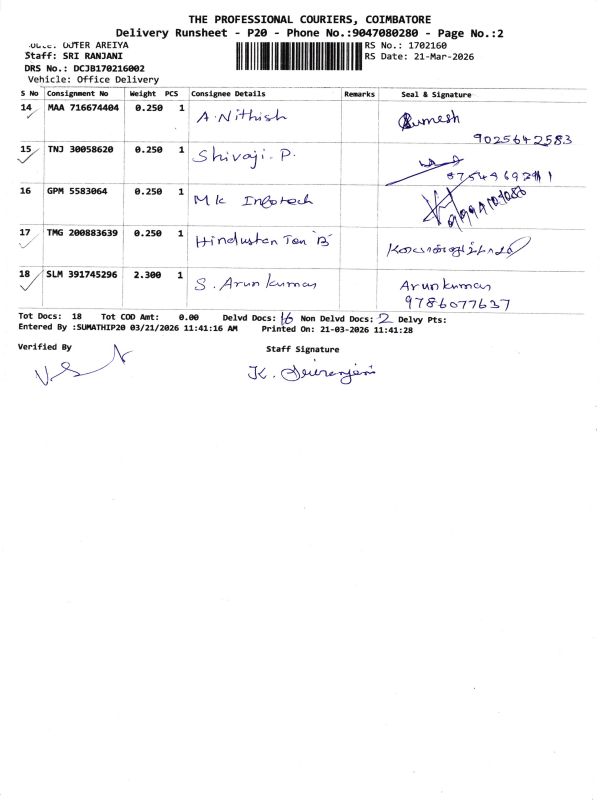 THE PROFESSIONAL COURIERS, COIMBATORE
Delivery Runsheet - P20 - Phone No.:9047080280 - Page No.:2
OUTER AREIYA
RS No.: 1702160
Staff: SRI RANJANI
RS Date: 21-Mar-2026
DRS No.: DCJB170216002
Vehicle: Office Delivery
S No Consignment No Weight PCS Consignee Details Remarks Seal & Signature
14 MAA 716674404 0.250 1 A. Nithish Sumesh
9025642583
15 TNJ 30058620 0.250 1 Shivaji. P.
16 GPM 5583064 0.250 1 MK Infotech
17 TMG 200883639 0.250 1 Hindustan
18 SLM 391745296 2.300 1 S. Arunkumar Arunkumar
9786077637
Tot Docs: 18 Tot COD Amt: 0.00 Delvd Docs: 16 Non Delvd Docs: 2 Delvy Pts:
Entered By :SUMATHIP20 03/21/2026 11:41:16 AM Printed On: 21-03-2026 11:41:28
Verified By Staff Signature
K. Sriranjani